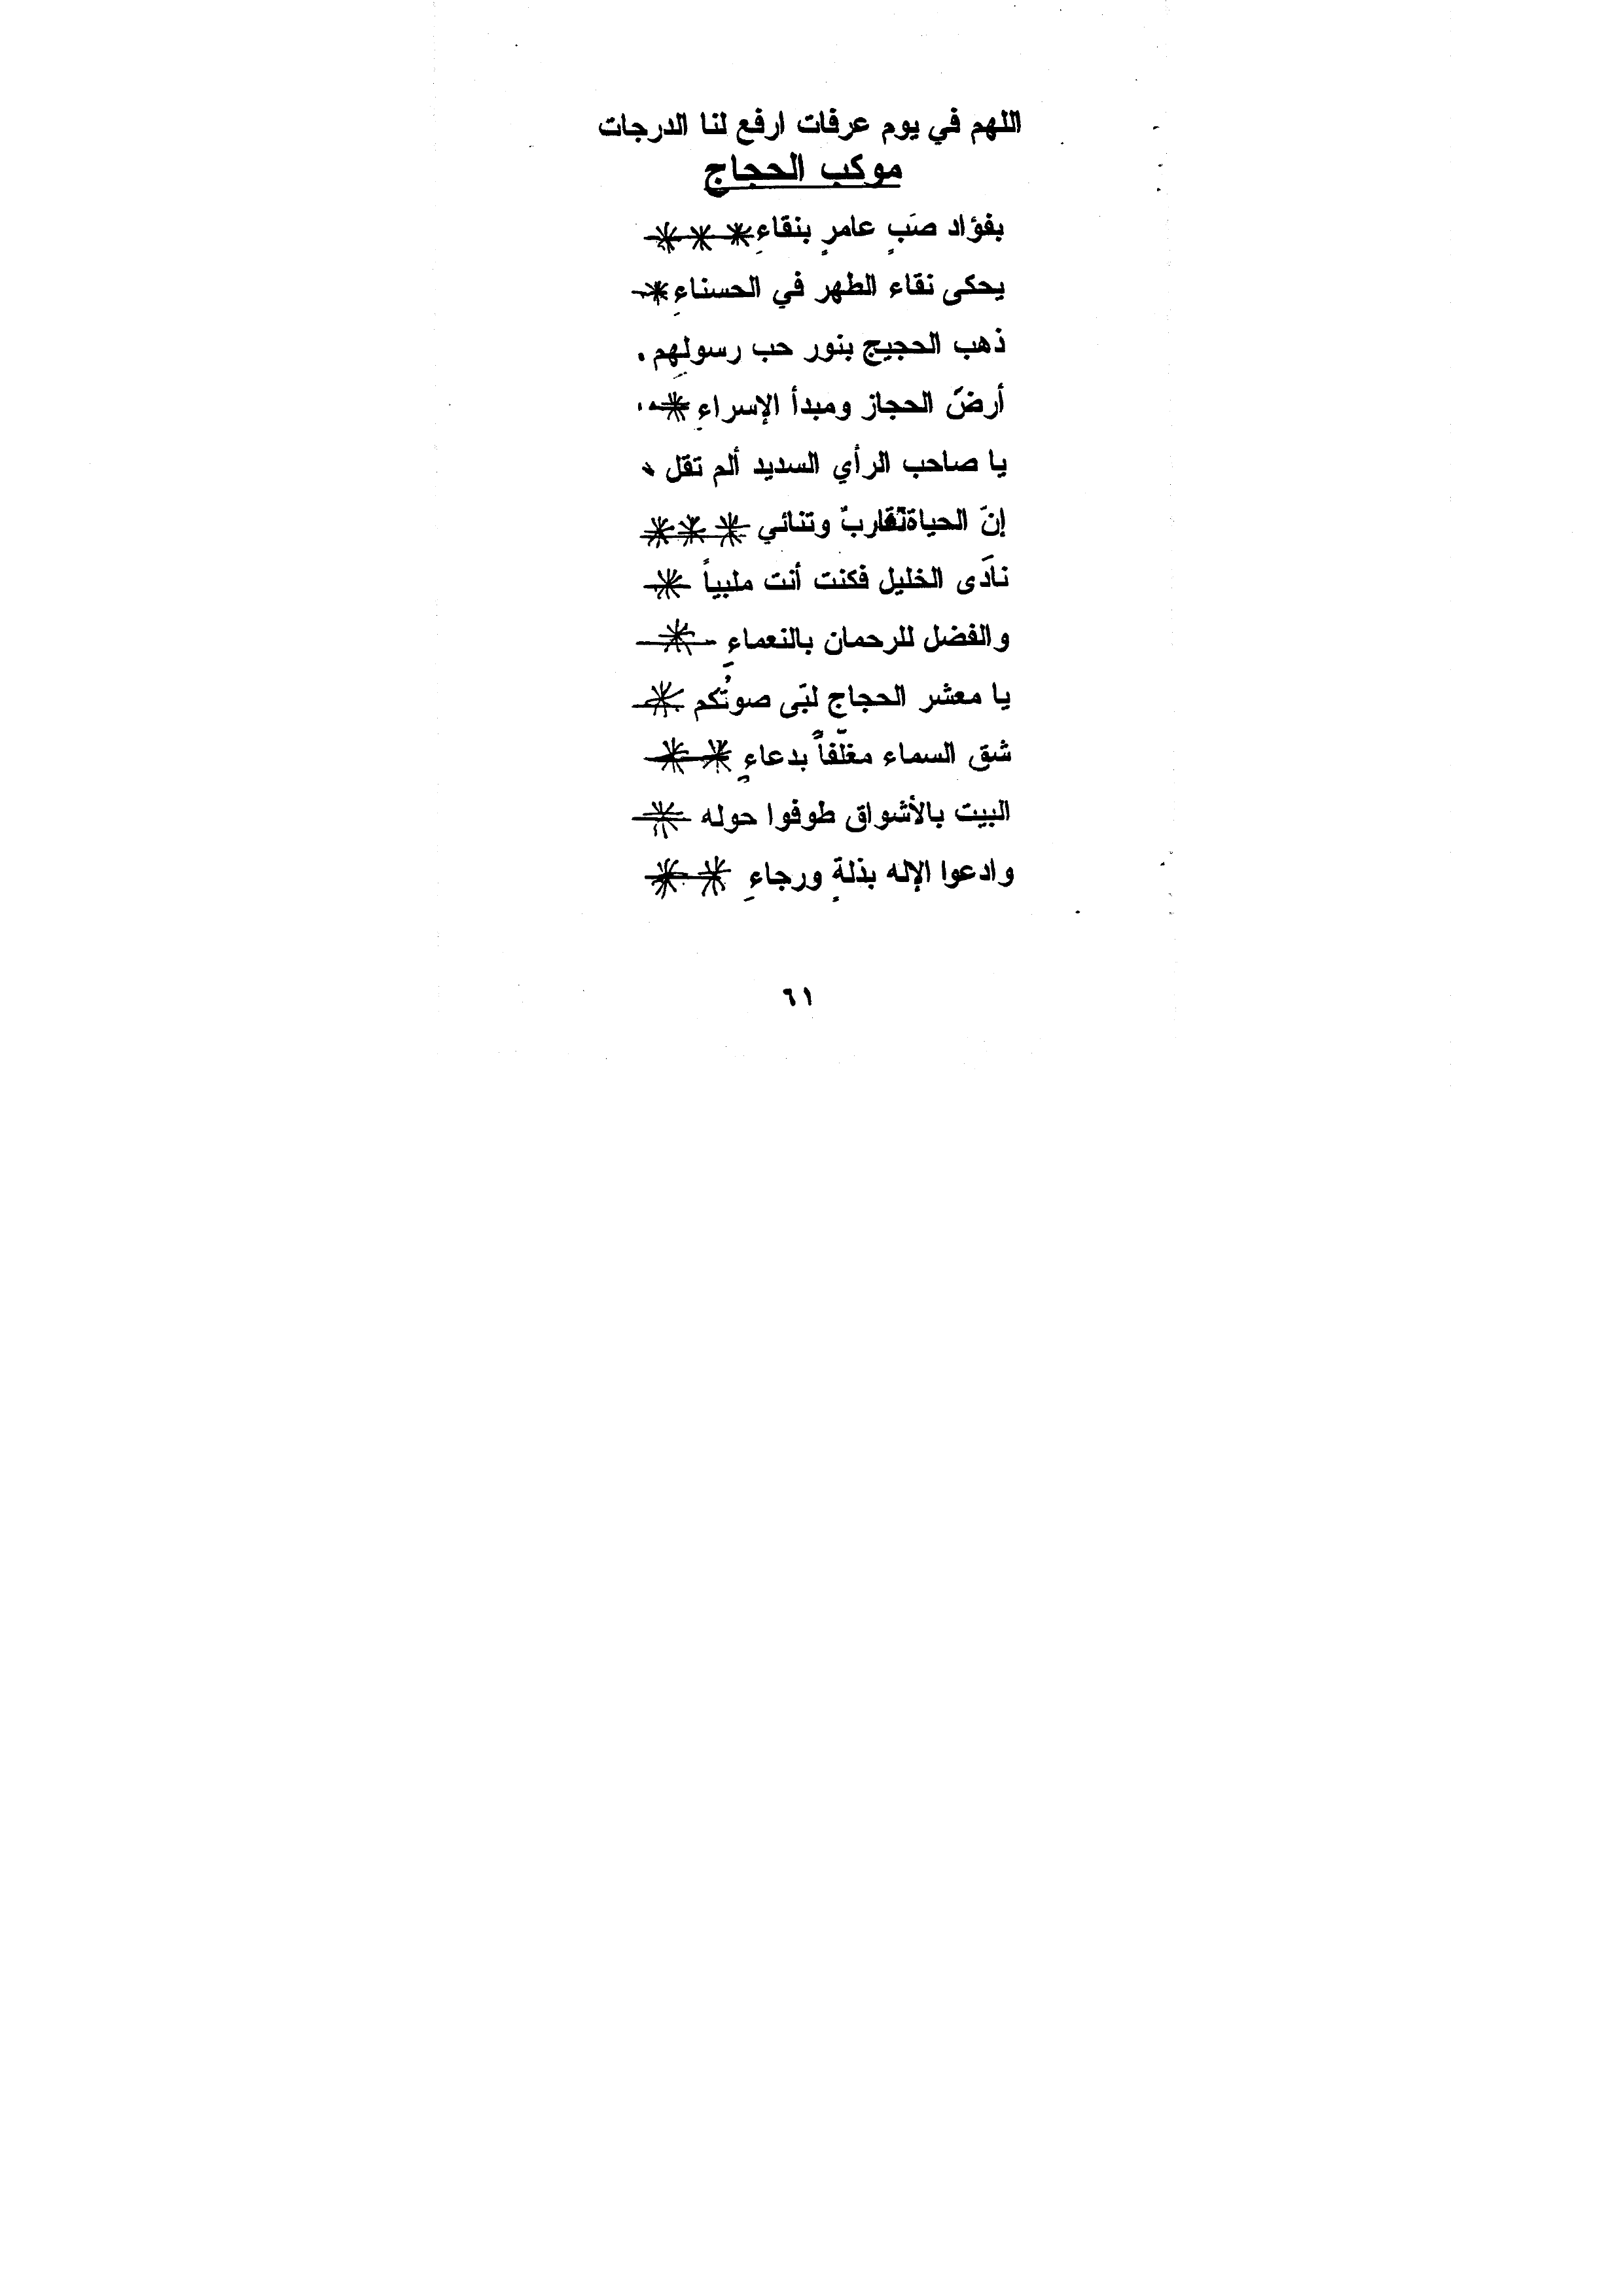 اللهم في يوم عرفات ارفع لنا الدرجات
موكب الحجاج
بفؤاد صَبٍ عامرٍ بنقاءِ
يحكى نقاء الطهر في الحسناءِ
ذهب الحجيج بنور حب رسولِهم
أرضَ الحجاز ومبدأ الإسراءِ
يا صاحب الرأي السديد ألم تقل
إنّ الحياة تقاربٌ وتنائي
نادَى الخليل فكنت أنت ملبياً
والفضل للرحمان بالنعماءِ
يا معشر الحجاج لبّى صوتُكم
شق السماء مغلّفاً بدعاءٍ
البيت بالأشواق طوفوا حوله
وادعوا الإله بذلةٍ ورجاءِ
٦١